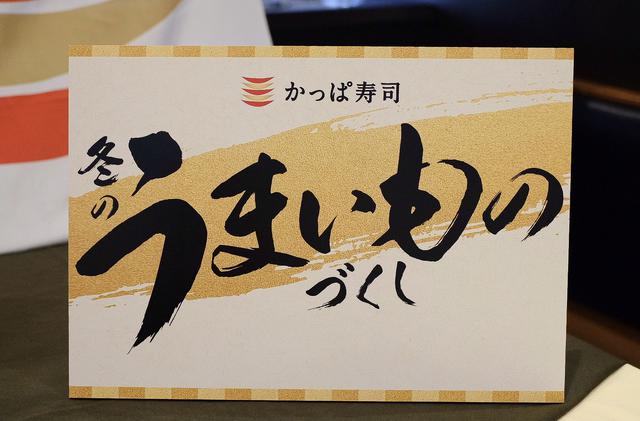 かっぱ寿司
冬の
うまいもの
づくし